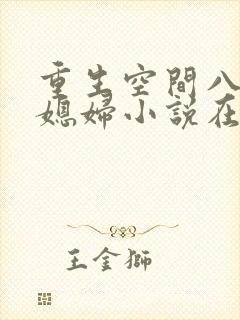 重生空間八
媳婦小說在
王金獅